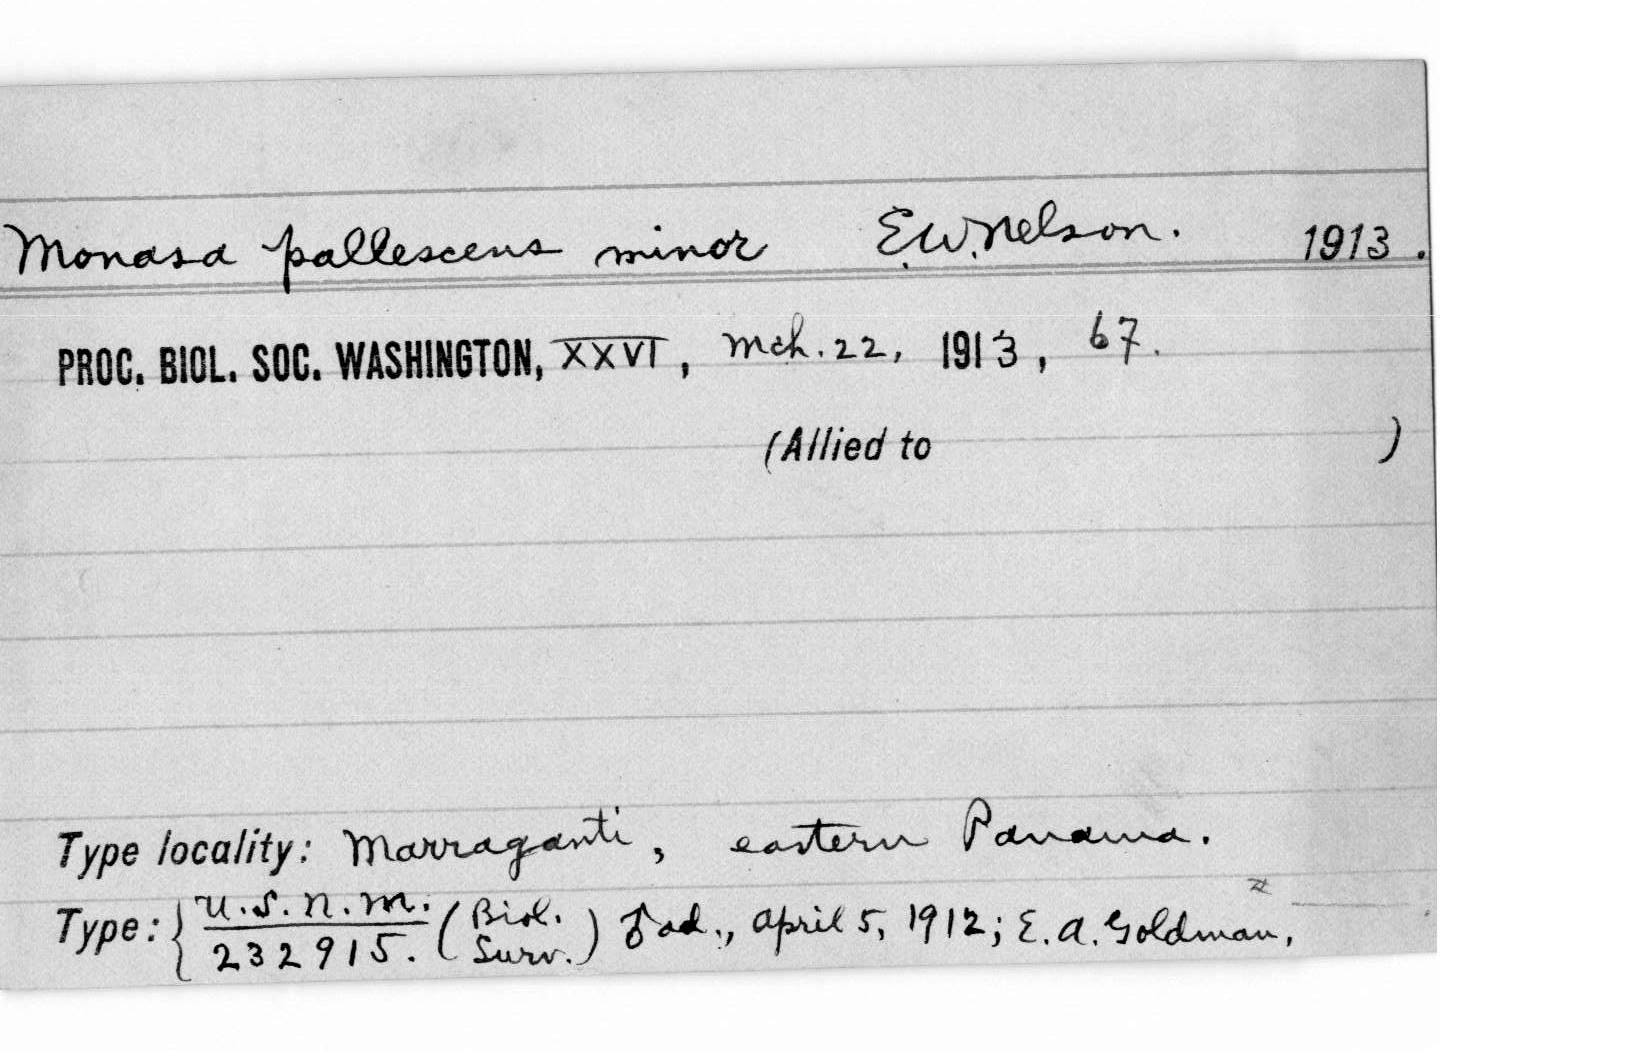 Monasa pallescens minor E.W. Nelson. 1913.
PROC. BIOL. SOC. WASHINGTON, XXVI, Mch. 22, 1913, 67.
(Allied to )
Type locality: Marraganti, eastern Panama.
Type: { U.S.N.M. 232915. (Biol. Surv.) ♂ ad., April 5, 1912; E. A. Goldman,